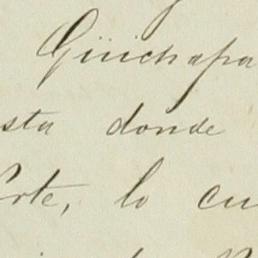 Güichapa
sta donde
rte, lo cu